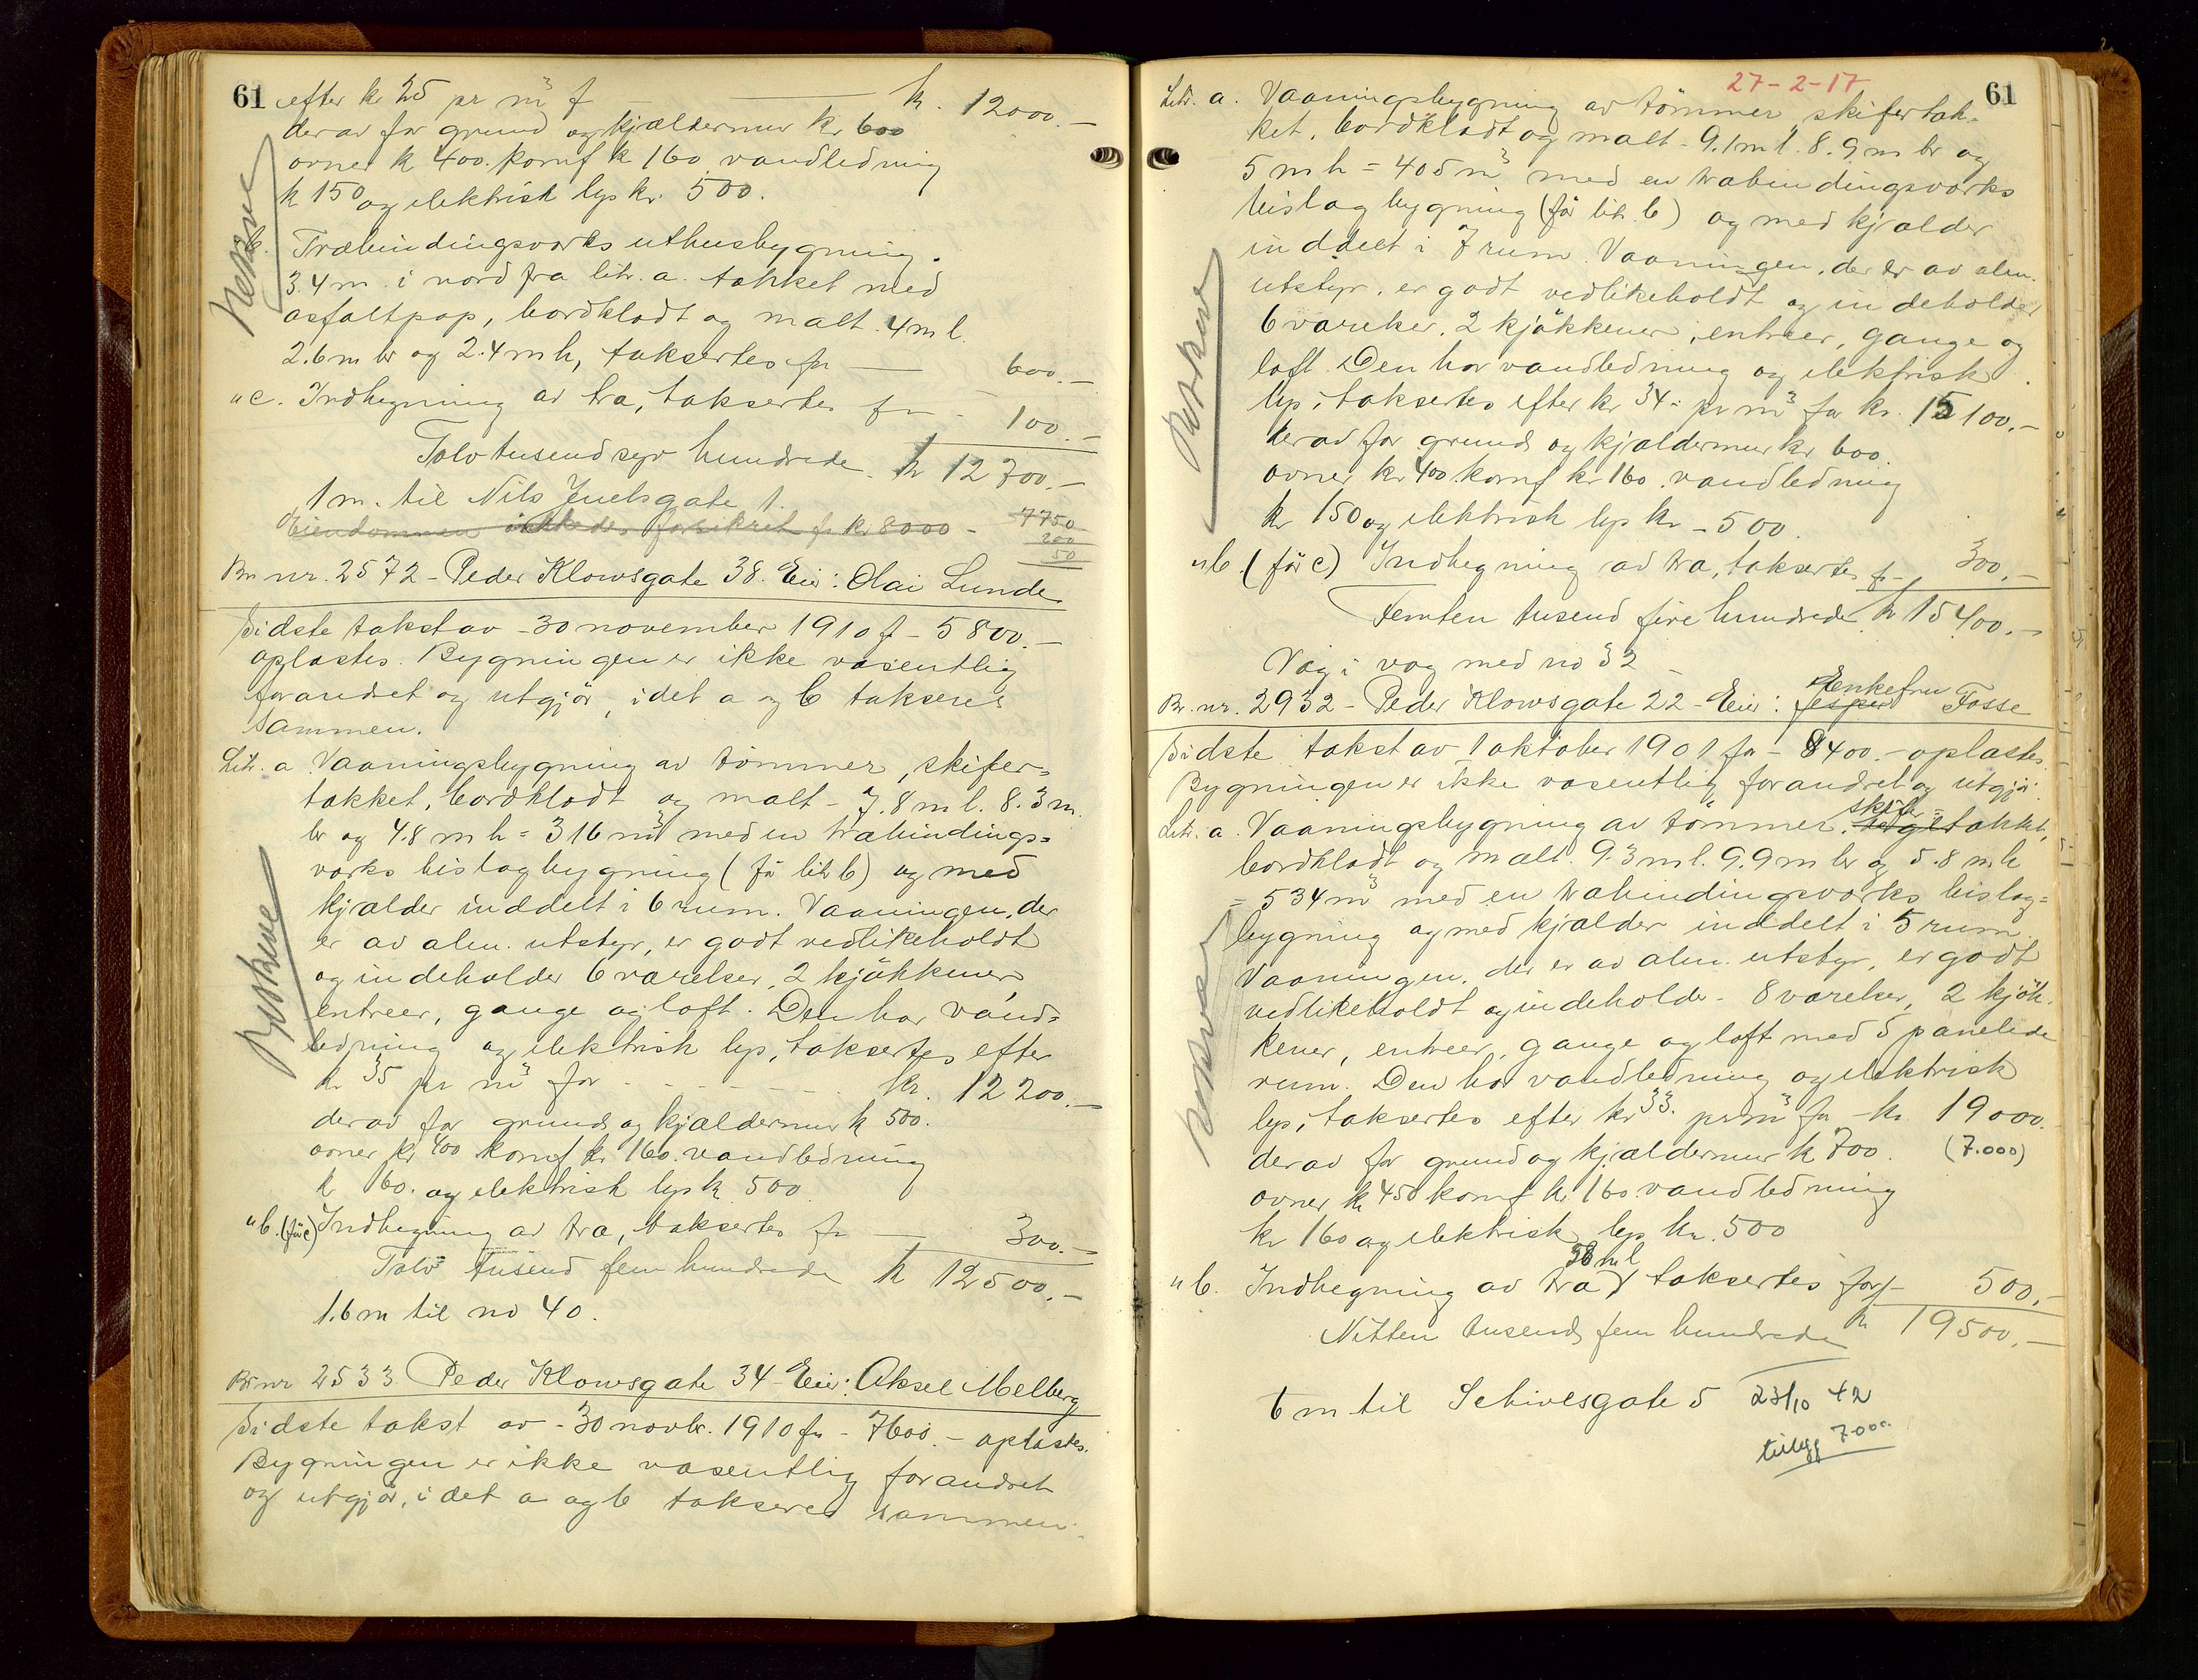 61 efter kr 25 pr m³ f kr. 12000.—
derav for grund og kjældermur kr 600
ovner k 400. komf k 160 vandledning
k 150 og elektrisk lys kr. 500.
b. Træbindingsværks uthusbygning.
3.4 m. i nord fra litr. a. tækket med
asfaltpap, bordklædt og malt. 4 m l.
2.6 m br og 2.4 m h, taksertes fr — 600.—
" c. Indhegning av træ, taksertes fr - 100.—
Tolv tusend syv hundrede kr 12700.—
1 m. til Nils Juelsgate 1.
Eiendommen forsikret fr kr 8000 - 7750
200
50
Br nr. 2572 - Peder Klowsgate 38. Eier: Olai Lunde
Sidste takst av - 30 november 1910 f - 5800.—
oplæstes. Bygningen er ikke væsentlig
forandret og utgjør, idet a og b takseres
sammen.
Litr. a Vaaningsbygning av tømmer, skifer=
tækket, bordklædt og malt - 7.8 m l. 8.3 m.
br og 4.8 m h = 316 m³ med en træbindings=
værks bislagbygning (før litr b) og med
kjælder inddelt i 6 rum. Vaaningen, der
er av alm. utstyr, er godt vedlikeholdt
og indeholder 6 værelser, 2 kjøkkener,
entreer, gange og loft. Den har vand=
ledning og elektrisk lys, taksertes efter
kr 35 pr m³ for - - - - - kr. 12200.—
derav for grund og kjældermur k 500.
ovner kr 400 komf kr 160. vandledning
k 160. og elektrisk lys k 500
" b. (før c) Indhegning av træ, taksertes fr — 300.—
Tolv tusend fem hundrede k 12500.—
1.6 m til no 40.
Br nr 2533 Peder Klowsgate 34 - Eier: Aksel Melberg
Sidste takst av - 30 novbr. 1910 fr - 7600.— oplæstes.
Bygningen er ikke væsentlig forandret
og utgjør, idet a og b takseres sammen.
Beskrevet
Beskrevet
27-2-17
61
Litr. a. Vaaningsbygning av tømmer skifertæk=
ket, bordklædt og malt - 9.1 m l. 8.9 m br og
5 m h = 405 m³ med en træbindingsværks
bislagbygning (før litr. b) og med kjælder
inddelt i 7 rum. Vaaningen, der er av alm.
utstyr, er godt vedlikeholdt og indeholder
6 værelser, 2 kjøkkener, entreer, gange og
loft. Den har vandledning og elektrisk
lys, taksertes efter kr 34 - pr m³ for kr. 15100.—
derav for grund og kjældermur kr 600
ovner kr 400. komf kr 160. vandledning
kr 150 og elektrisk lys kr - 500.
" b. (før c) Indhegning av træ, taksertes fr - 300.—
Femten tusend fire hundrede kr 15400.—
Væg i væg med no 32
Br. nr. 2932 - Peder Klowsgate 22 - Eier: Jesper Enkefru Fosse
Sidste takst av 1 oktober 1901 for - 8400.— oplæstes.
Bygningen er ikke væsentlig forandret og utgjør:
Litr. a. Vaaningsbygning av tømmer, tegl skifer= tækket,
bordklædt og malt. 9.3 m l. 9.9 m br og 5.8 m h
= 534 m³ med en træbindingsværks bislag=
bygning og med kjælder inddelt i 5 rum.
Vaaningen, der er av alm. utstyr, er godt
vedlikeholdt og indeholder - 8 værelser, 2 kjøk=
kener, entreer, gange og loft med 5 panelede
rum. Den har vandledning og elektrisk
lys, taksertes efter kr 33. pr m³ for - kr. 19000.
derav for grund og kjældermur k 700. (7.000)
ovner k 450 komf kr. 160 vandledning
kr 160 og elektrisk lys kr. 500
" b. Indhegning av træ 38 m l taksertes for - 500.—
Nitten tusend fem hundrede kr 19500.—
6 m til Schivesgate 5 23/10 42
tillegg 7000.
Beskrevet
Beskrevet